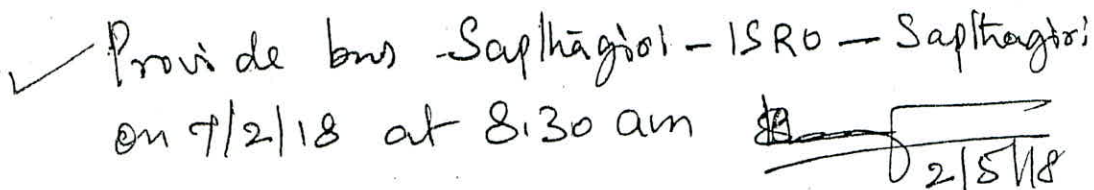 Provide bus Sapthagiri - ISRO - Sapthagiri
on 7/2/18 at 8.30 am
2/5/18